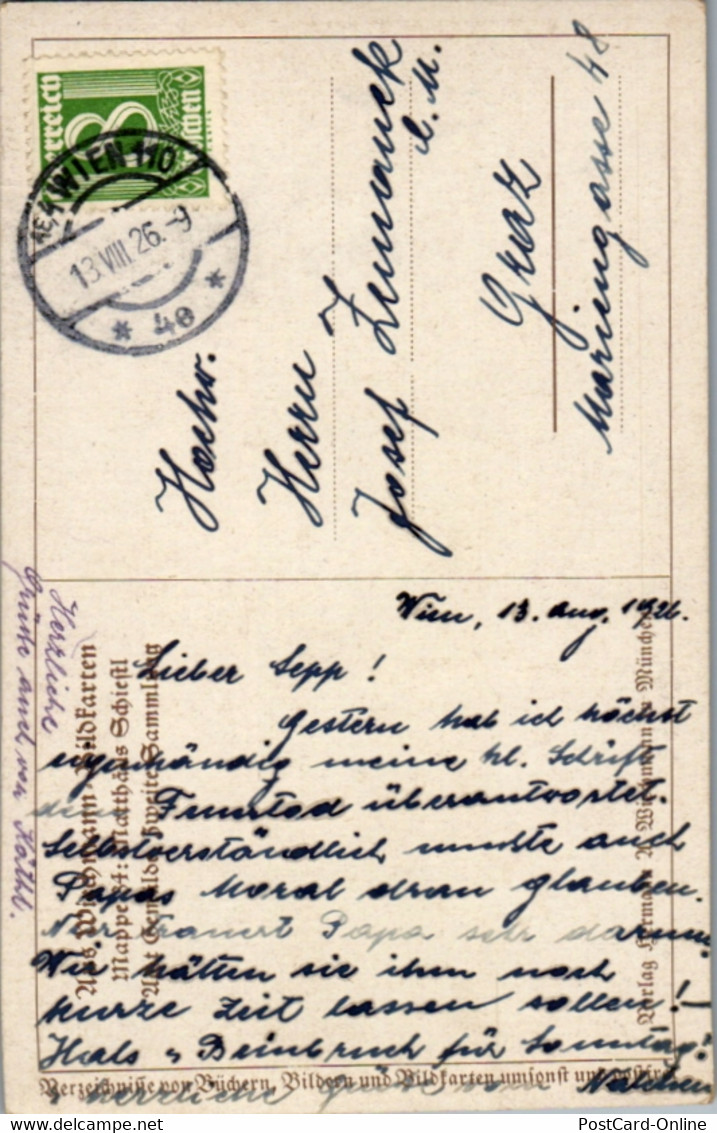 Österreich
8
Groschen
WIEN 110
13.VIII.26.-9
* 4e *
Hochw.
Herrn
Josef Zemanek
Graz
Mariengasse 48
Wien, 13. Aug. 1926.
Lieber Sepp!
Gestern hab ich höchst
eigenhändig meine hl. Schrift
dem Feuertod überantwortet.
Selbstverständlich musste auch
Papas Moral dran glauben.
Nur trauert Papa sehr darum.
Wir hätten sie ihm noch
kurze Zeit lassen sollen! –
Hals u Beinbruch für Sonntag!
u herzliche Grüße von
Herzliche
Grüße auch von Käthl.
Wiechmann-Bildkarten
Mappe 54: Matthäus Schiestl
Acht Gemälde, Zweite Sammlung
Verlag Hermann A. Wiechmann in München
Verzeichnisse von Büchern, Bildern und Bildkarten umsonst und postfrei
PostCard-Online